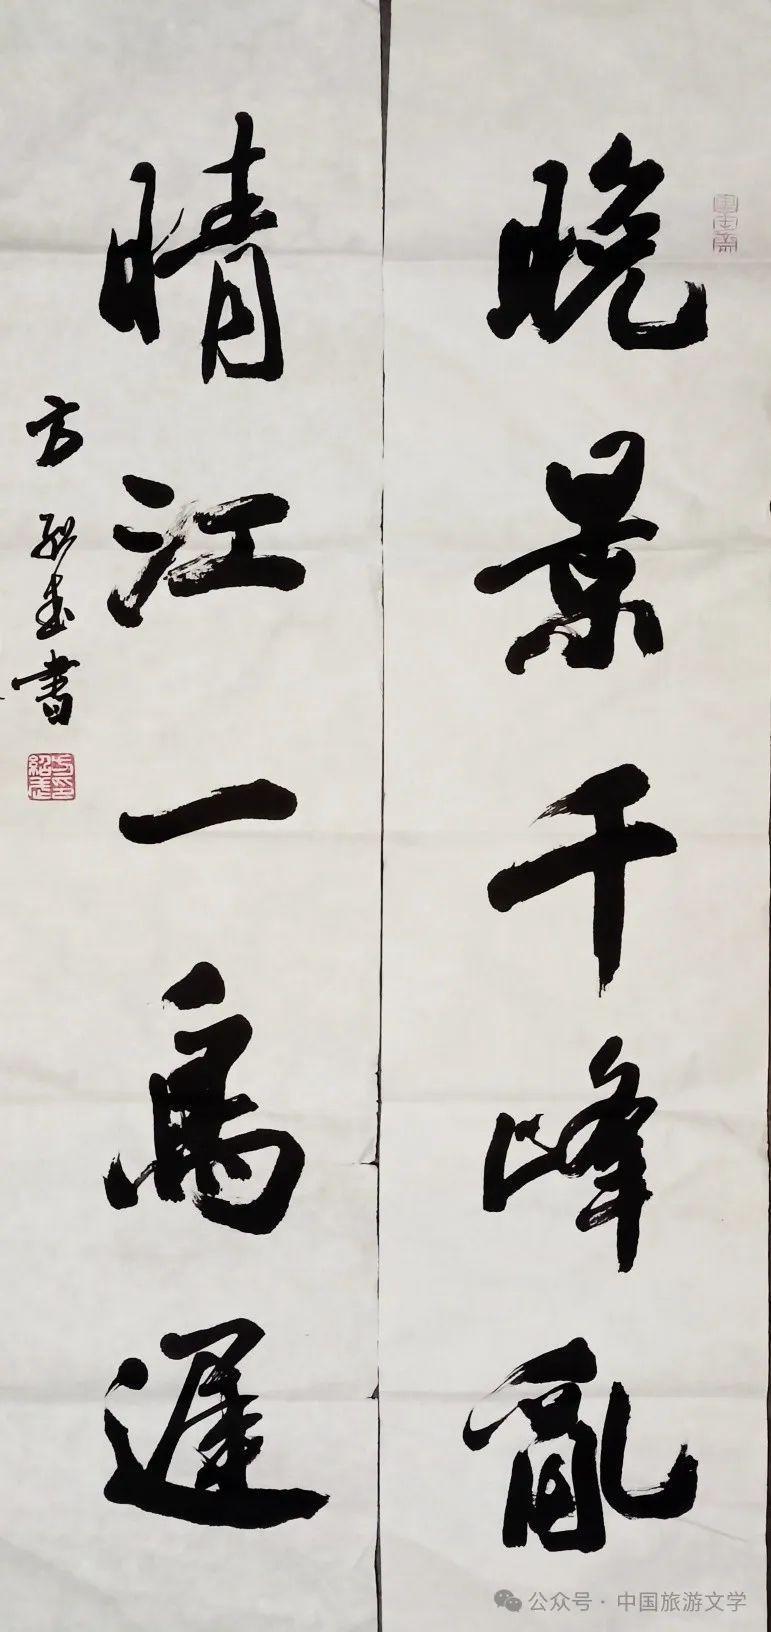 晚景千峰亂
晴江一鳥遲
方紹武書
方印紹武
公众号 · 中国旅游文学